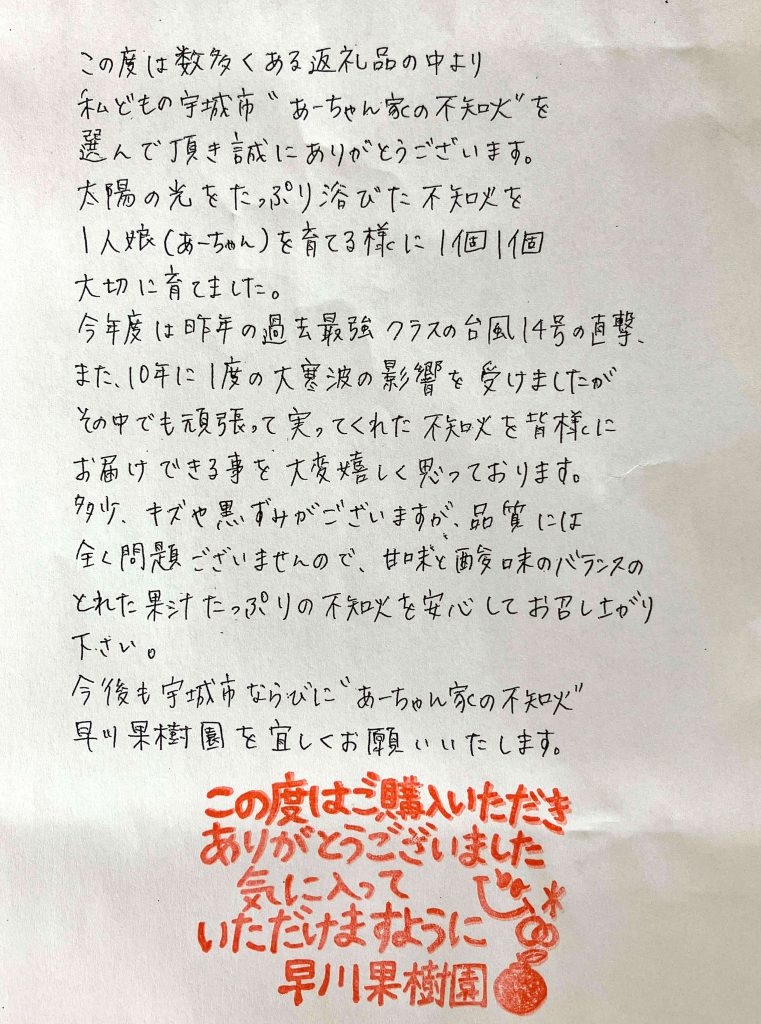 この度は数多くある返礼品の中より
私どもの宇城市〝あーちゃん家の不知火〟を
選んで頂き誠にありがとうございます。
太陽の光をたっぷり浴びた不知火を
1人娘(あーちゃん)を育てる様に1個1個
大切に育てました。
今年度は昨年の過去最強クラスの台風14号の直撃、
また、10年に1度の大寒波の影響を受けましたが
その中でも頑張って実ってくれた不知火を皆様に
お届けできる事を大変嬉しく思っております。
多少、キズや黒ずみがございますが、品質には
全く問題ございませんので、甘味と酸味のバランスの
とれた果汁たっぷりの不知火を安心してお召し上がり
下さい。
今後も宇城市ならびに〝あーちゃん家の不知火〟
早川果樹園を宜しくお願いいたします。
この度はご購入いただき
ありがとうございました
気に入って
いただけますように
早川果樹園